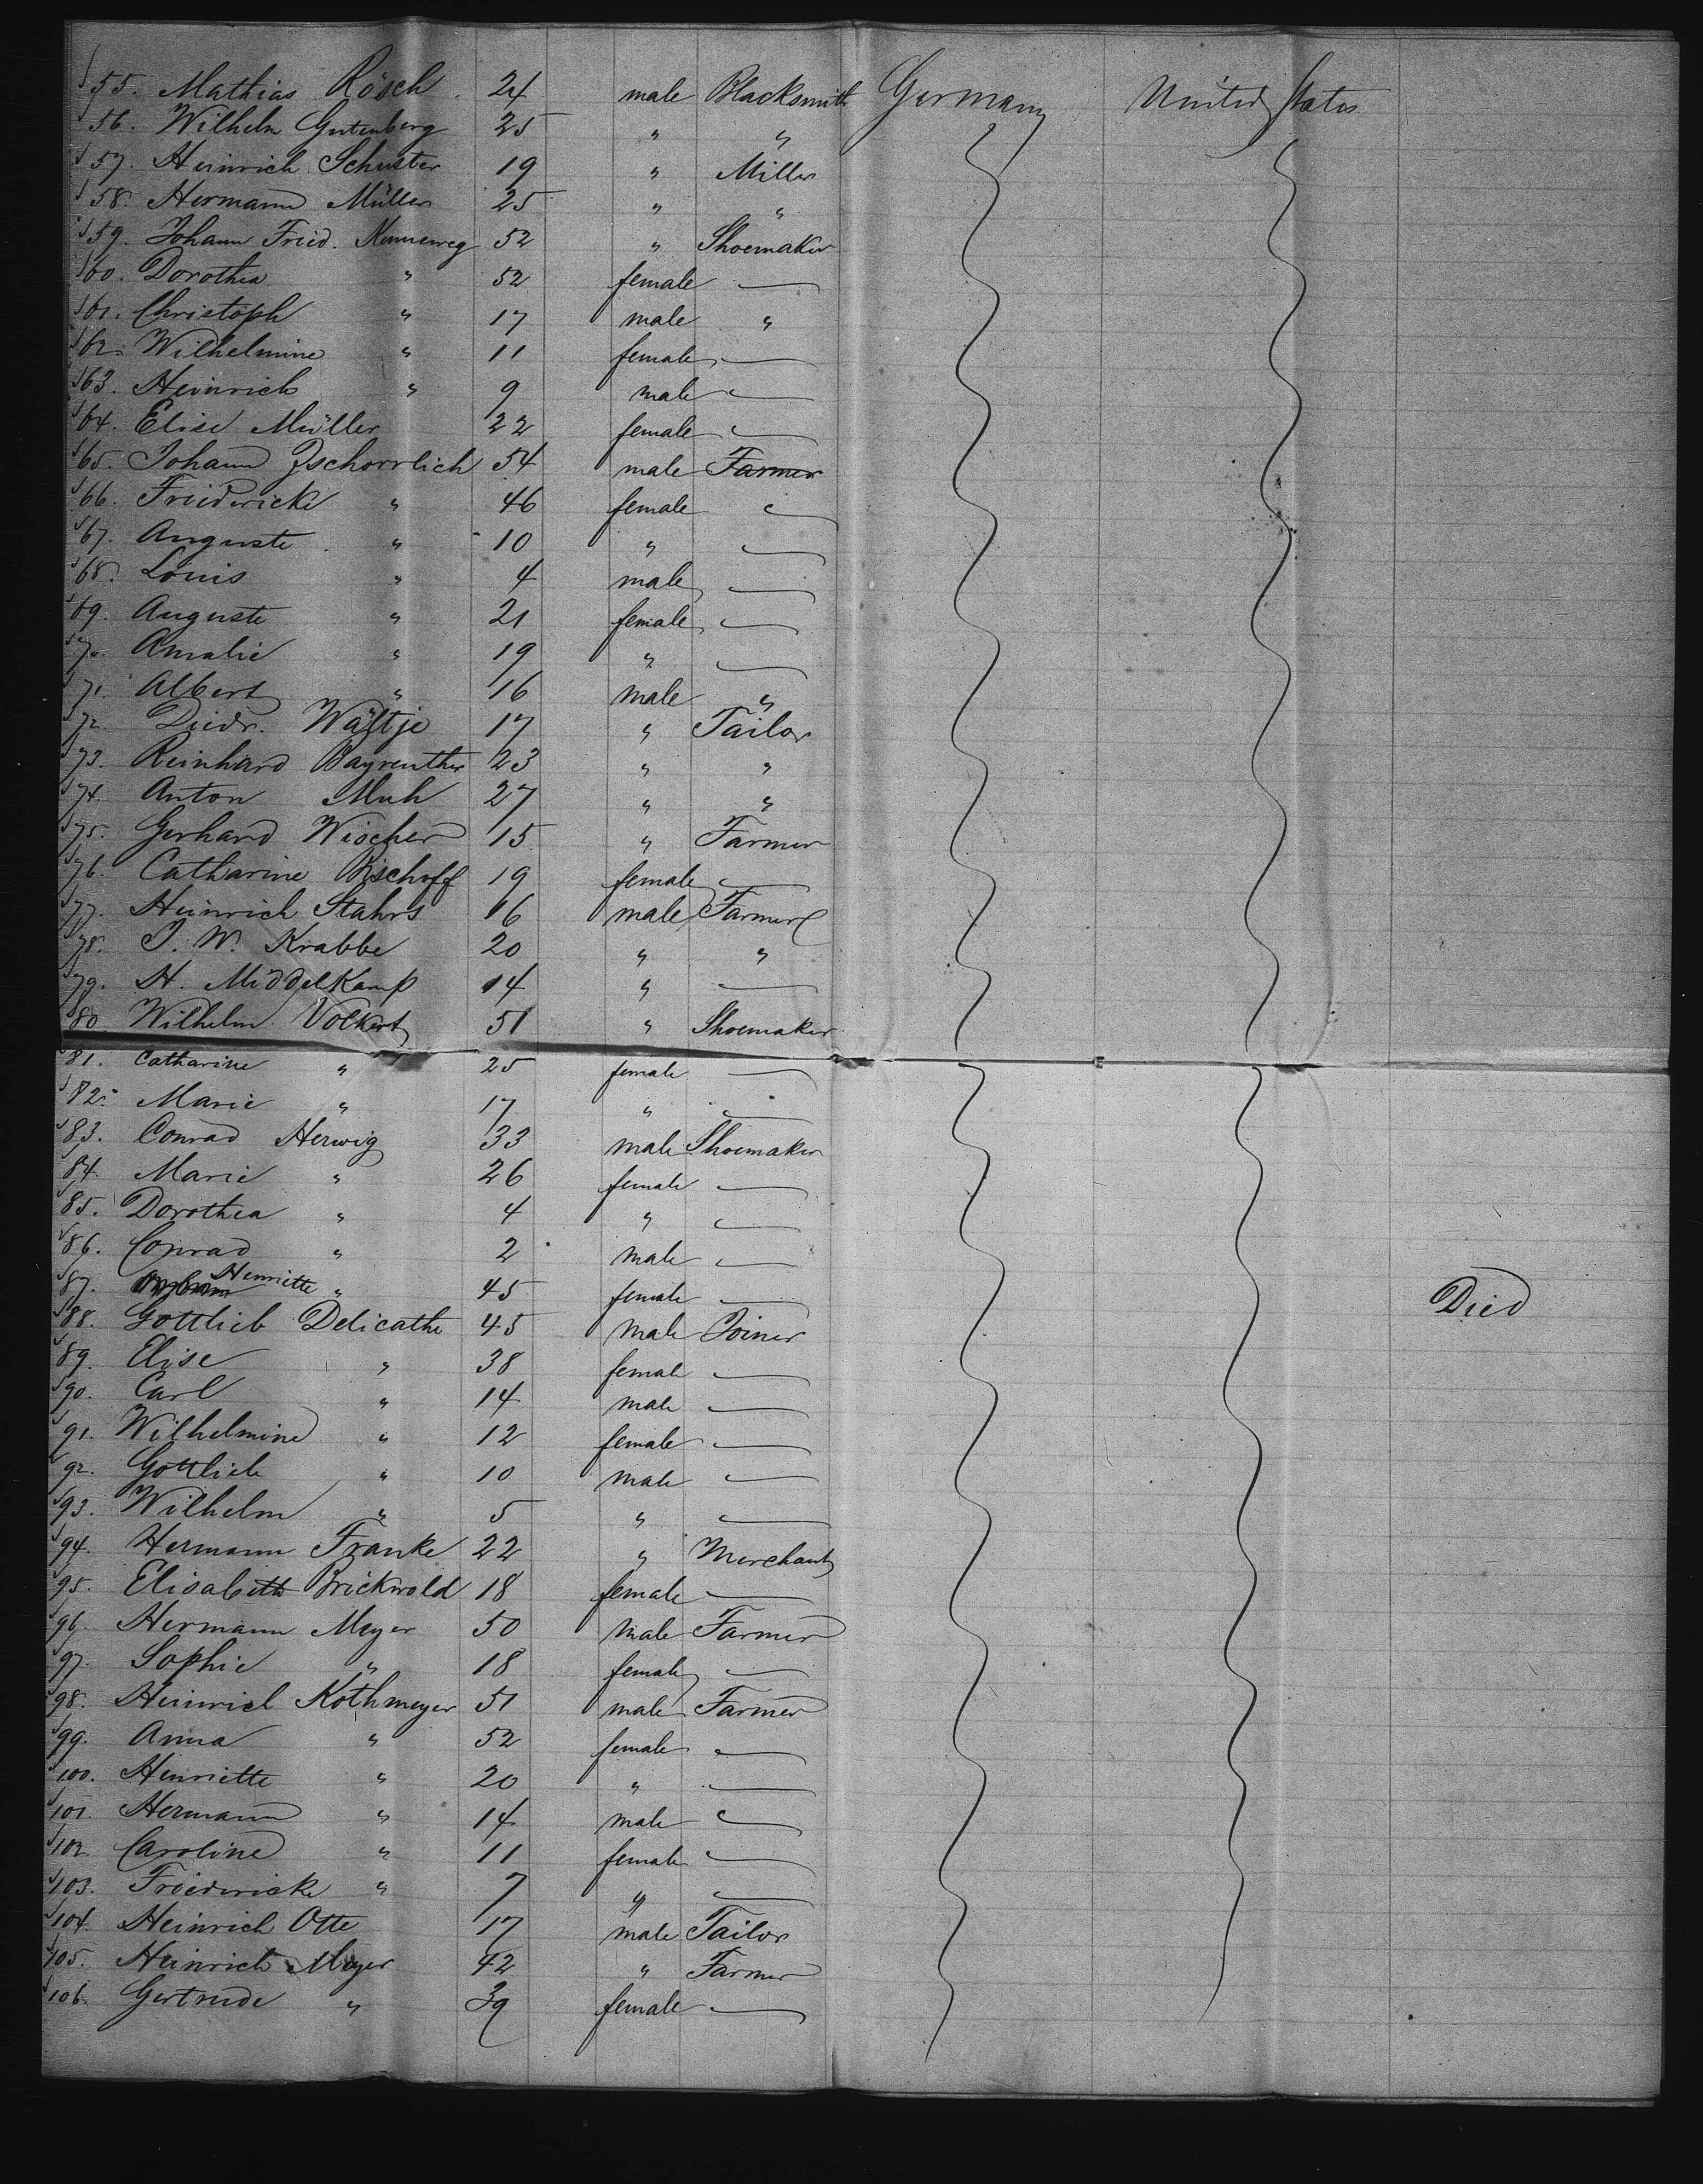 55. Mathias Rösch 24 male Blacksmith Germany United States
56. Wilhelm Gutenberg 25 " "
57. Heinrich Schuster 19 " Miller
58. Hermann Müller 25 " "
59. Johann Fried. 52 " Shoemaker
60. Dorothea " 52 female —
61. Christoph " 17 male "
62. Wilhelmine " 11 female —
63. Heinrich " 9 male —
64. Elise Müller 22 female —
65. Johann Zschorrlich 54 male Farmer
66. Friedericke " 46 female —
67. Auguste " 10 " —
68. Louis " 4 male —
69. Auguste " 21 female —
70. Amalie " 19 " —
71. Albert " 16 male "
72. Diedr. Wältje 17 " Tailor
73. Reinhard Bayreuther 23 " "
74. Anton Muh 27 " "
75. Gerhard Wischer 15 " Farmer
76. Catharine Bischoff 19 female —
77. Heinrich Stahrs 16 male Farmer
78. J. W. Krabbe 20 " "
79. H. Middelkamp 14 " —
80 Wilhelm Volkert 51 " Shoemaker
81. Catharine " 25 female —
82. Marie " 17 " —
83. Conrad Herwig 33 male Shoemaker
84. Marie " 26 female —
85. Dorothea " 4 " —
86. Conrad " 2 male —
87. Henriette " 45 female — Died
88. Gottlieb Delicathe 45 male Joiner
89. Elise " 38 female —
90. Carl " 14 male —
91. Wilhelmine " 12 female —
92. Gottlieb " 10 male —
93. Wilhelm " 5 " —
94. Hermann Franke 22 " Merchant
95. Elisabeth Brickwold 18 female —
96. Hermann Meyer 50 male Farmer
97. Sophie " 18 female —
98. Heinrich Kothmeyer 51 male Farmer
99. Anna " 52 female —
100. Henriette " 20 " —
101. Hermann " 14 male —
102. Caroline " 11 female —
103. Friedericke " 7 " —
104. Heinrich Otte 17 male Tailor
105. Heinrich Meyer 42 " Farmer
106. Gertrude " 39 female —